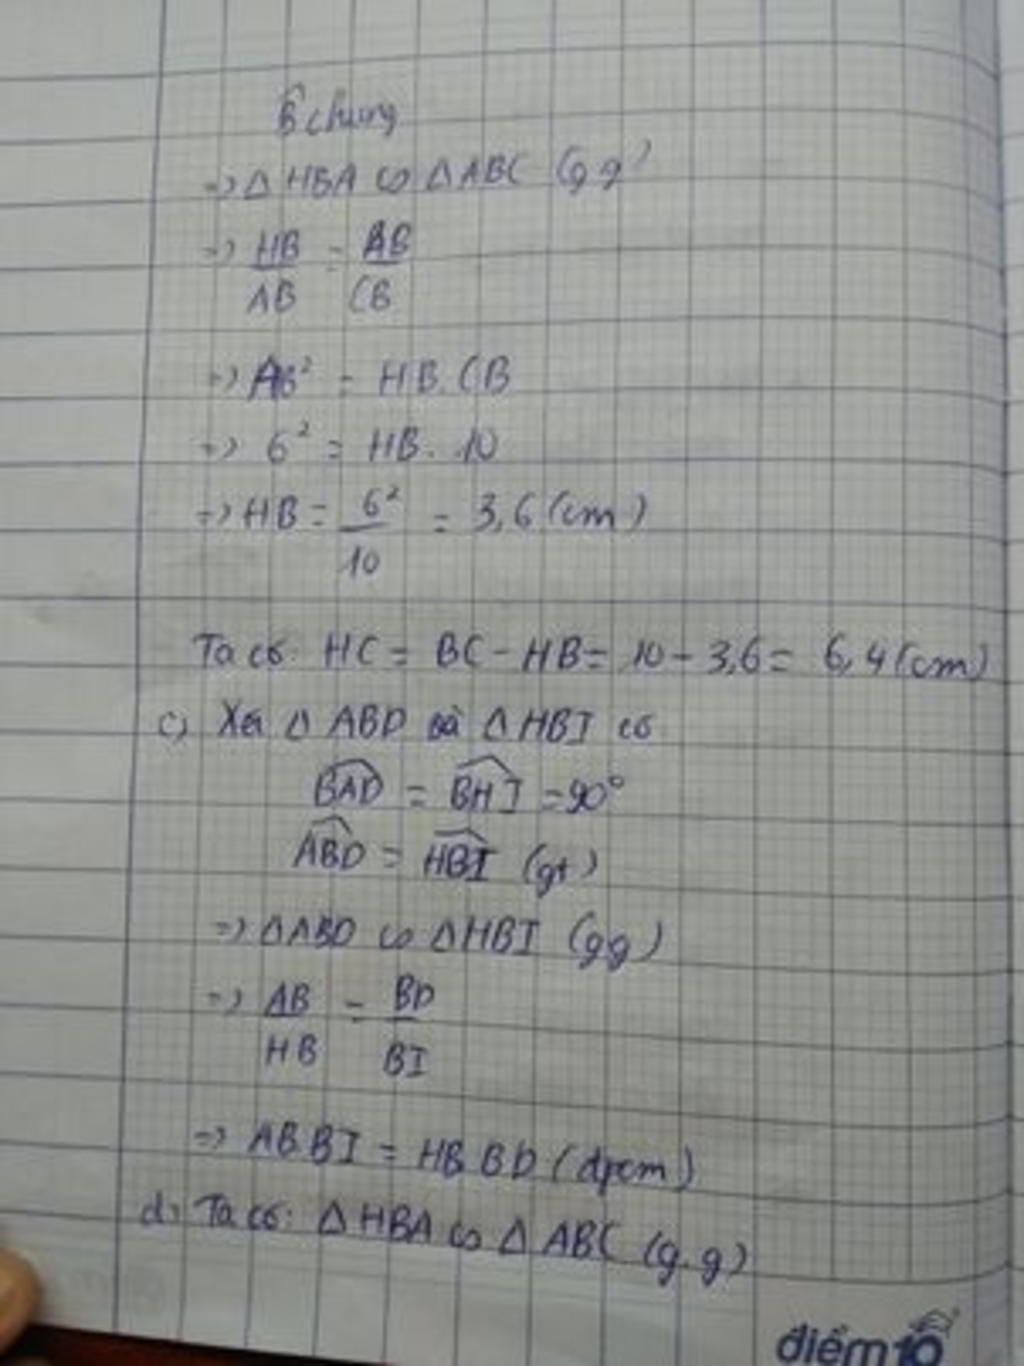 B̂ chung
=> Δ HBA ∽ Δ ABC (g g)
=> HB/AB = AB/CB
=> AB² = HB. CB
=> 6² = HB. 10
=> HB = 6²/10 = 3,6 (cm)
Ta có: HC = BC - HB = 10 - 3,6 = 6,4 (cm)
c) Xét Δ ABD và Δ HBI có
BAD = BHI = 90°
ABD = HBI (gt)
=> ΔABD ∽ ΔHBI (gg)
=> AB/HB = BD/BI
=> AB.BI = HB.BD (đpcm)
d) Ta có: Δ HBA ∽ Δ ABC (g.g)
điểm10